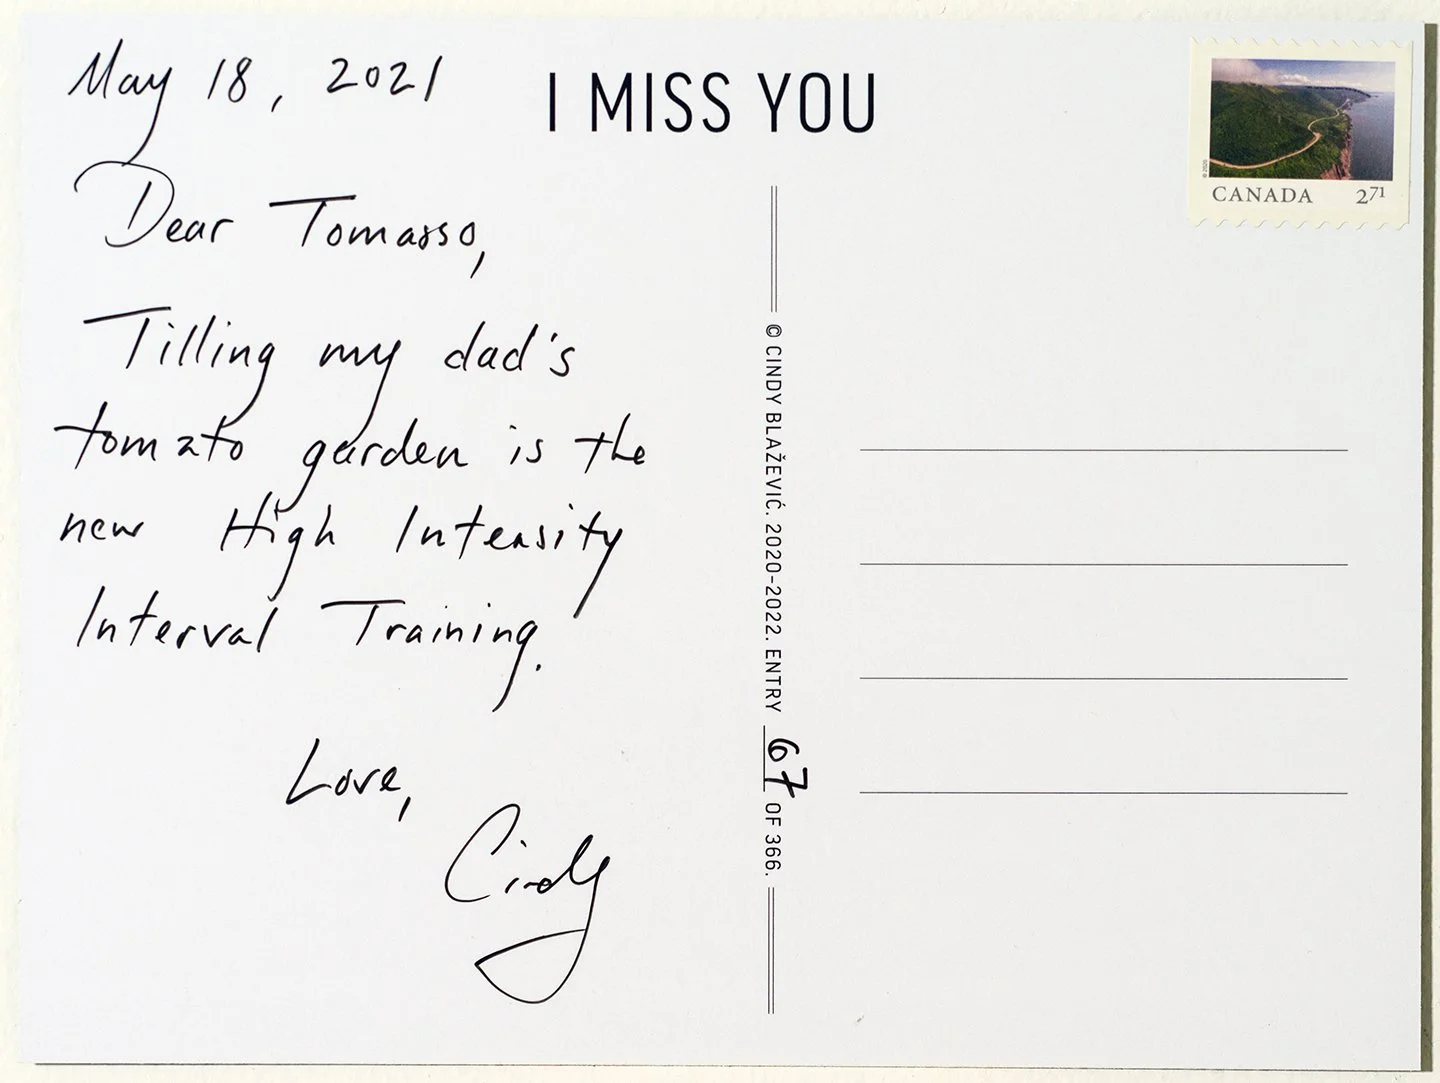 May 18, 2021
I MISS YOU
CANADA 2⁷¹
© 2020
Dear Tomasso,
Tilling my dad's
tomato garden is the
new High Intensity
Interval Training.
Love,
Cindy
© CINDY BLAŽEVIĆ. 2020-2022. ENTRY 67 OF 366.